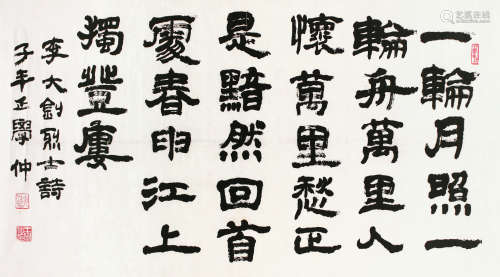 一輪月照一
輪舟萬里人
懷萬里愁正
是黯然回首
處春申江上
獨登廔
李大釗烈士詩
子年王學仲